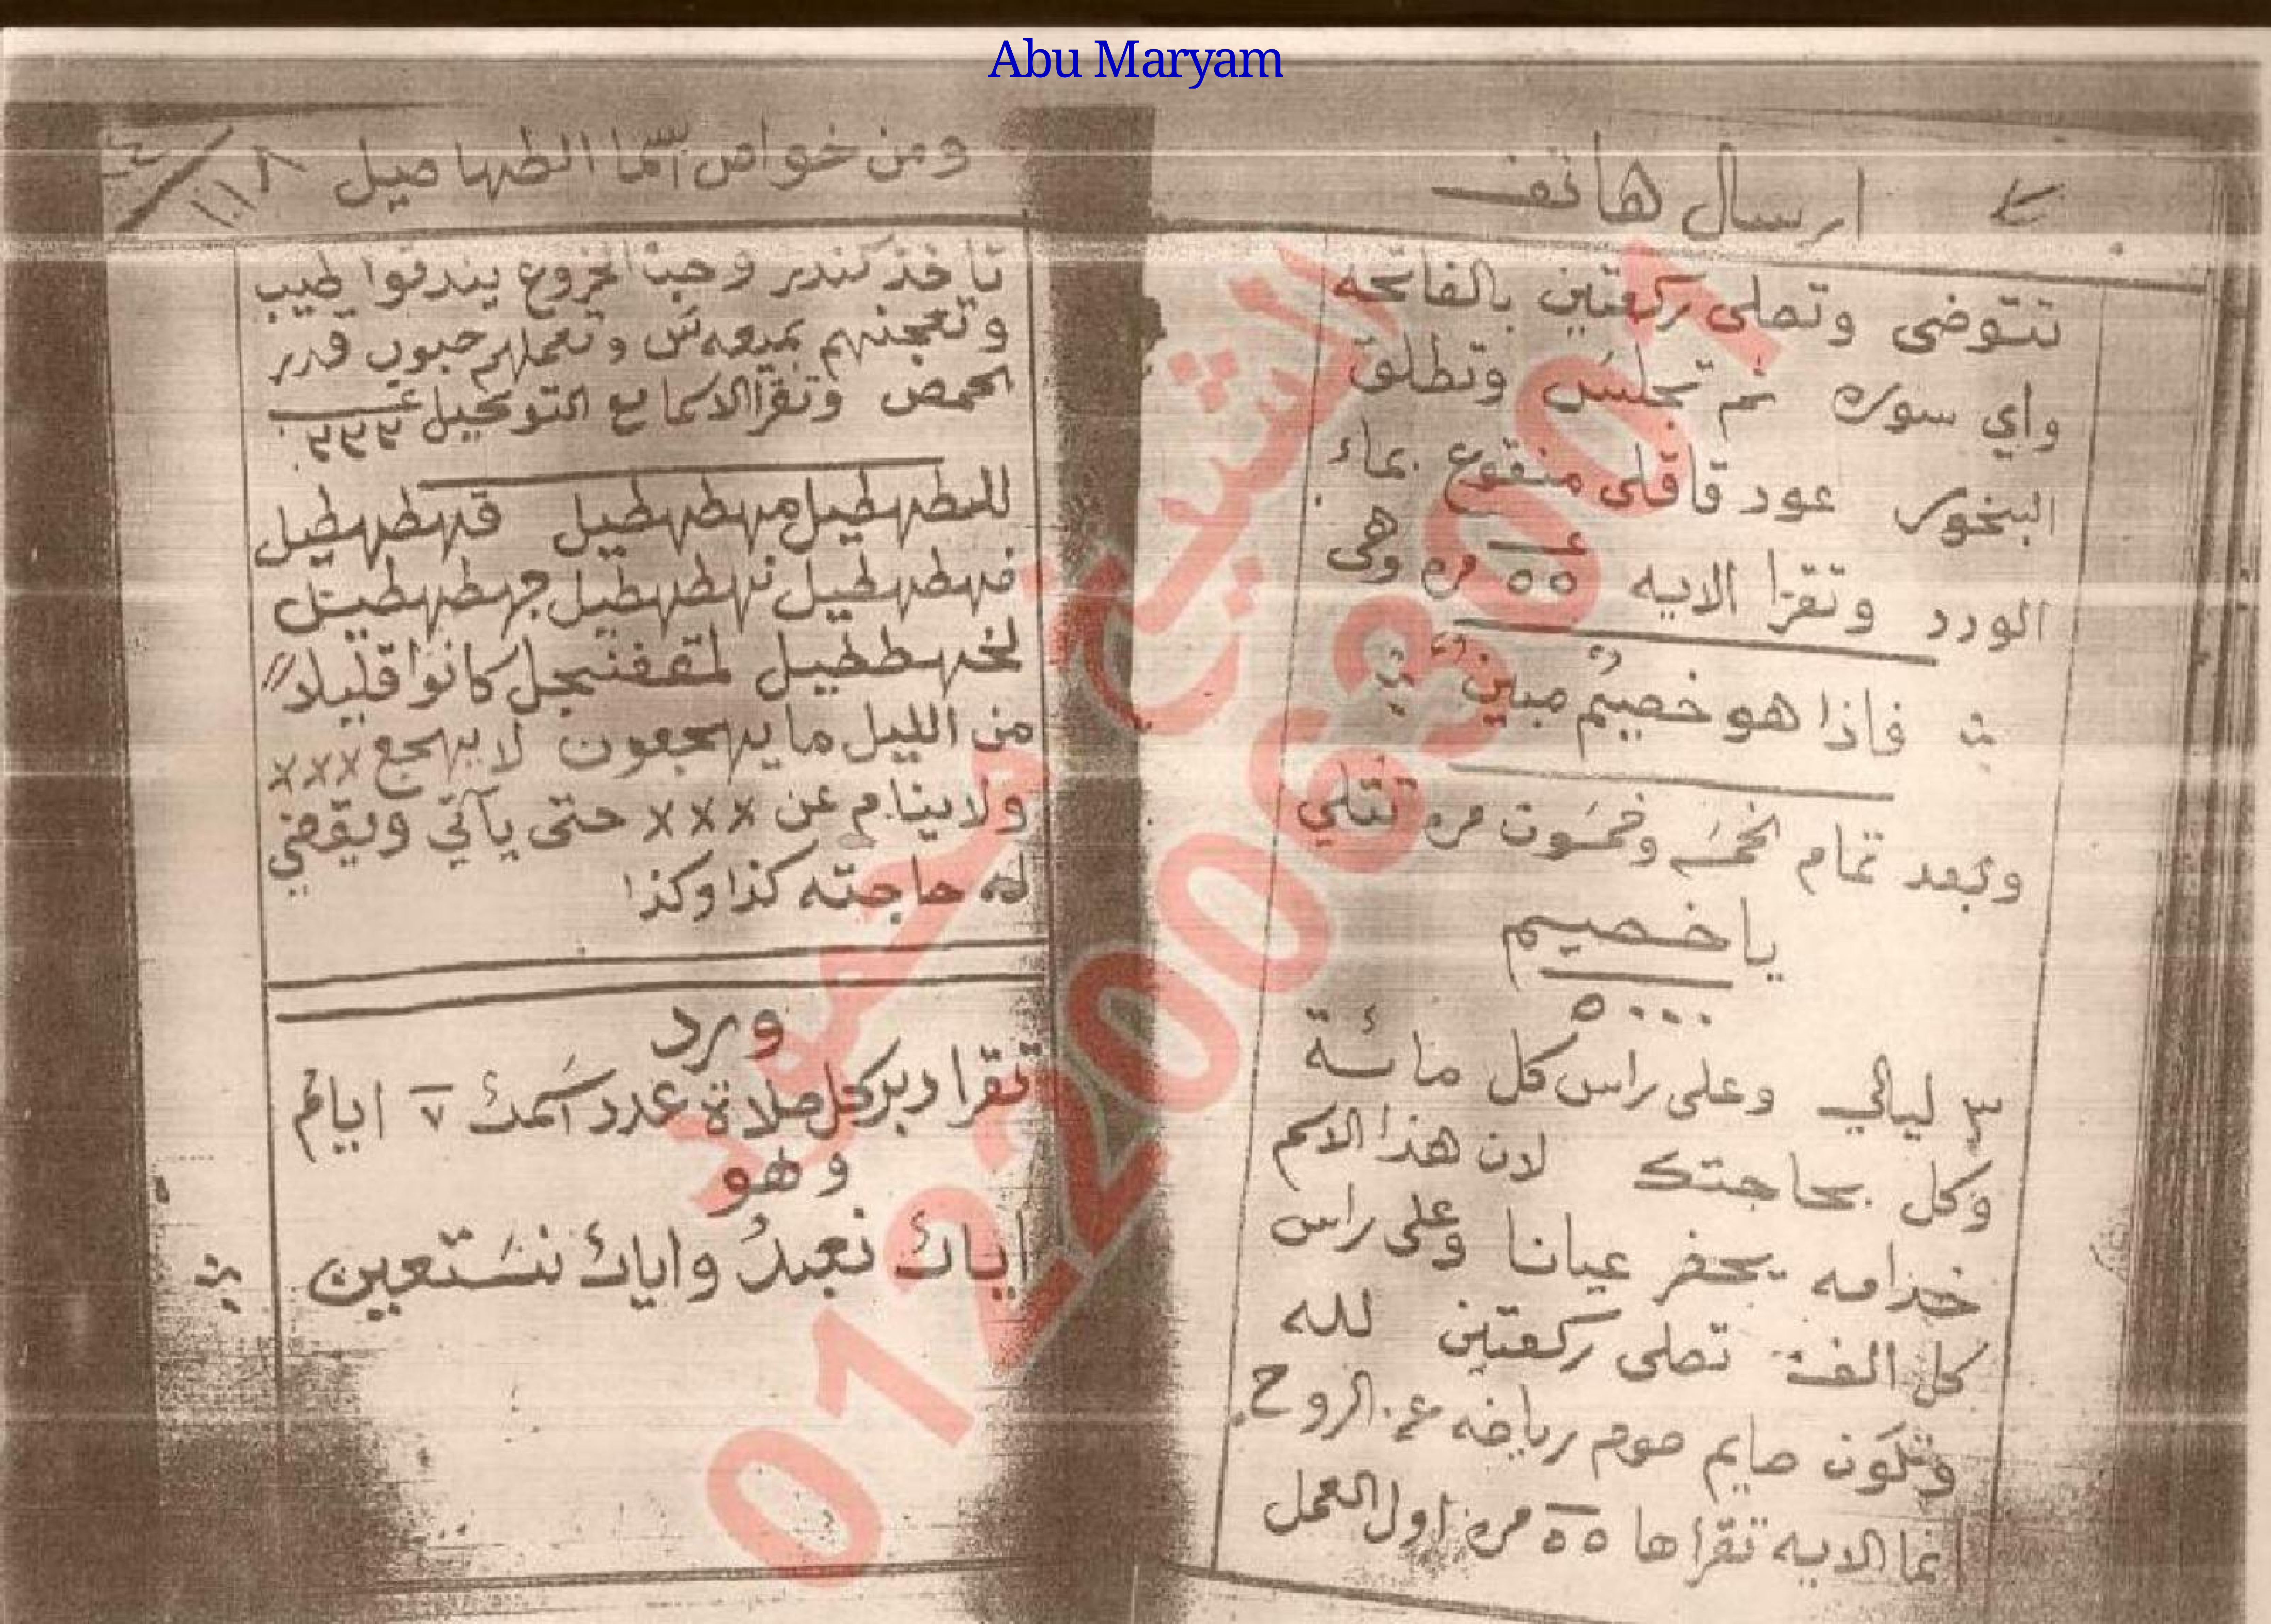 Abu Maryam
ارسال هاتف
تتوضى وتصلى ركعتين بالفاتحه
واي سوره ثم تجلس وتطلق
البخور عود قاقلى منقوع بماء
الورد وتقرا الايه ٥٥ مره وهى
فاذا هو خصيم مبين
وبعد تمام الخمسه وخمسون مره تتلي
يا خصيم
٥٠٠٠
٣ ليالي وعلى راس كل مائة
وكل بحاجتك لان هذا الاسم
خدامه يحضر عيانا وعلى راس
كل الف تصلى ركعتين لله
وتكون صايم صوم رياضه الروح
انما الايه تقراها ٥٥ مره اول العمل
ومن خواص اسما الطهاصيل ١٠١٨
تاخذ كندر وحب الخروع يندقوا طيب
وتعجنهم بميعه وتعملهم حبوب قدر
الحمص وتقرا الاسما مع التوكيل ٣٣٣
للطهطيل مهطهطيل قهطهطيل
فهطهطيل نهطهطيل جهطهطيل
لخهططيل لمقفنجل كانوا قليلا
من الليل ما يهجعون لا يهجع ×××
ولا ينام عن ××× حتى ياتي ويقضي
له حاجته كذا وكذا
ورد
تقرا دبر كل صلاة عدد اسمك ٧ ايام
وهو
اياك نعبدُ واياك نستعين
الشيخ محمود
01220063001